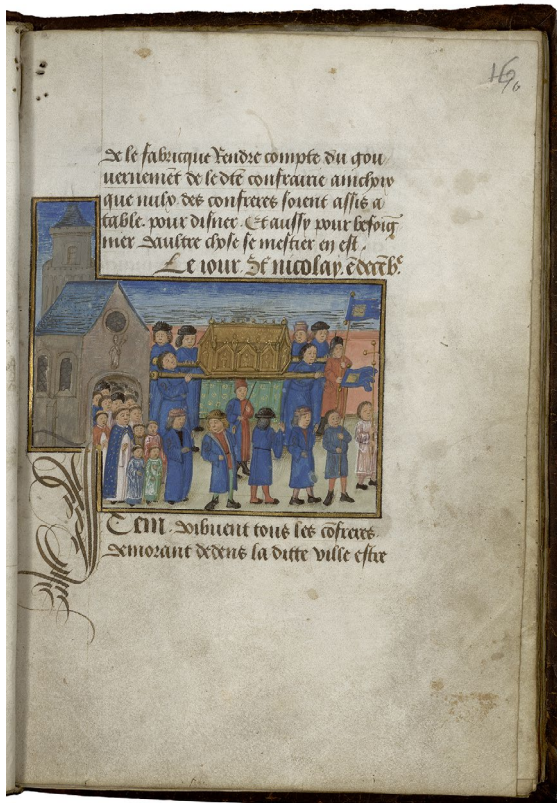 16
de le fabricque Rendre compte du gou
uernemēt de le dte confrairie ainchoix
que nulz des confreres soient assis a
table. pour disner. Et aussy pour besoig
nier daultre chose se mestier en est.
Le iour. St nicolay. ē decēbe
Item. doibuent tous les cōfreres.
demorant dedens la ditte ville estre